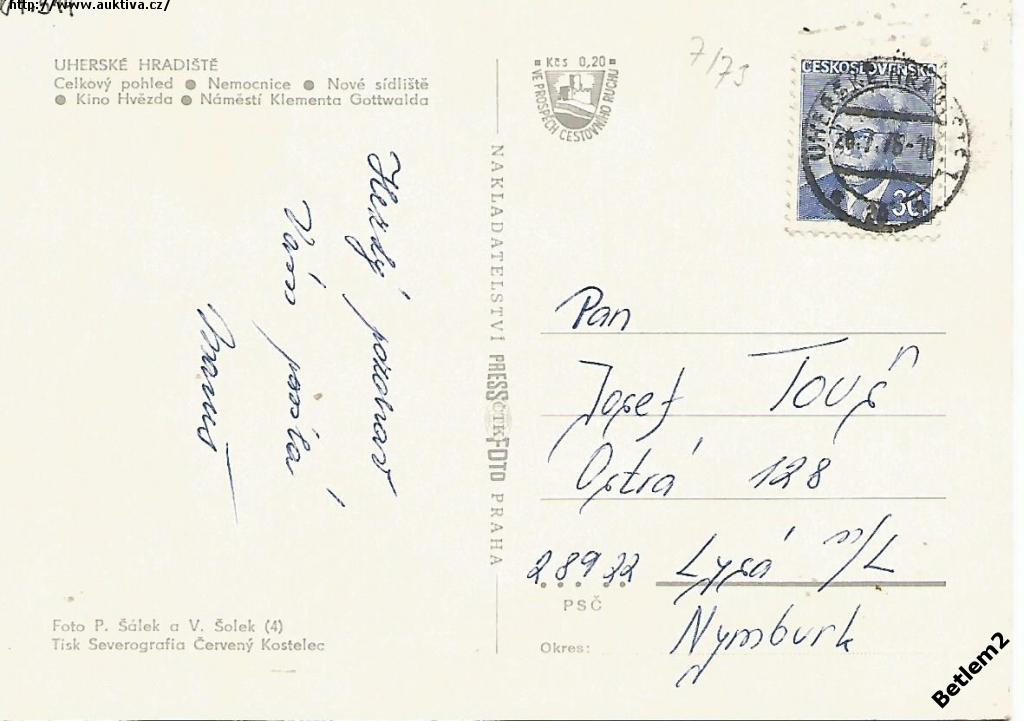 http://www.auktiva.cz/
UHERSKÉ HRADIŠTĚ
Celkový pohled ● Nemocnice ● Nové sídliště
● Kino Hvězda ● Náměstí Klementa Gottwalda
Kčs 0,20
VE PROSPĚCH CESTOVNÍHO RUCHU
7/73
ČESKOSLOVENSKO
UHERSKÉ HRADIŠTĚ 1
NAKLADATELSTVÍ PRESSFOTO PRAHA
ČTK
Hezký pozdrav
Vám posílá
Pan
Josef
Ostrá 128
289 22 Lysá n/L
PSČ
Nymburk
Okres:
Foto P. Šálek a V. Šolek (4)
Tisk Severografia Červený Kostelec
Betlem2